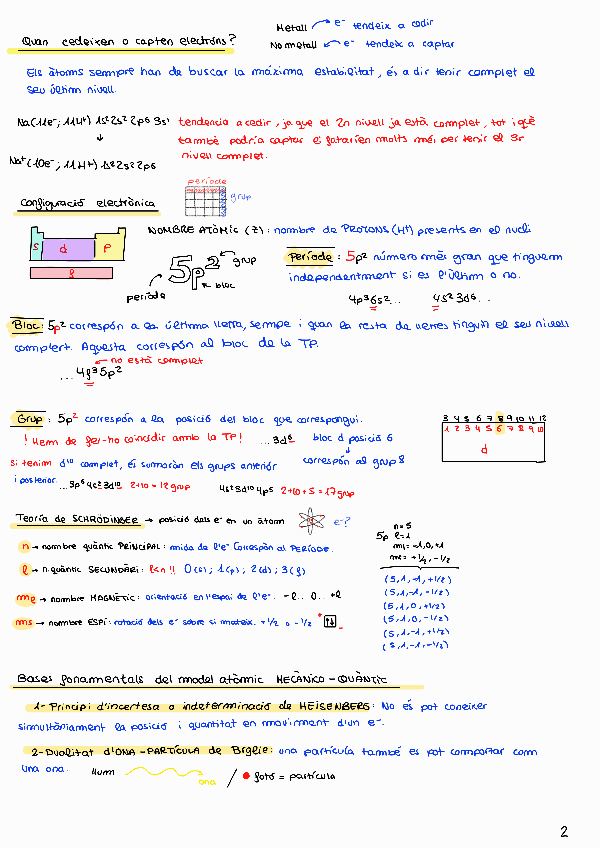 Quan cedeixen o capten electróns?
Metall e⁻ tendeix a cedir
No metall e⁻ tendeix a captar
Els àtoms sempre han de buscar la màxima estabilitat, és a dir tenir complet el
seu últim nivell.
Na (11e⁻; 11H⁺) 1s² 2s² 2p6 3s¹
tendencia a cedir, ja que el 2n nivell ja està complet, tot i que
també podría captar e⁻ faltaríen molts més per tenir el 3r
nivell complet.
Na⁺ (10e⁻; 11H⁺) 1s² 2s² 2p6
Configuració electrònica
període
grup
s d p
f
NOMBRE ATÒMIC (Z): nombre de PROTONS (H⁺) presents en el nucli
5p² grup
bloc
període
Període: 5p² número més gran que tinguem
independentment si es l'últim o no.
4p³ 6s² ... 4s² 3d6 ..
Bloc: 5p² correspón a la última lletra, sempre i quan la resta de lletres tinguin el seu nivell
complert. Aquesta correspón al bloc de la TP.
no està complet
... 4f³ 5p²
Grup: 5p² correspón a la posició del bloc que correspongui.
! Hem de fer-ho coincidir amb la TP! ... 3d6 bloc d posició 6
correspón al grup 8
3 4 5 6 7 8 9 10 11 12
1 2 3 4 5 6 7 8 9 10
d
Si tenim d¹⁰ complet, és sumaràn els grups anterior
i posterior ... 3p6 4s² 3d¹⁰ 2+10 = 12 grup 4s² 3d¹⁰ 4p5 2+10+5 = 17 grup
Teoría de SCHRÖDINGER → posició dels e⁻ en un àtom e⁻?
n → nombre quàntic PRINCIPAL: mida de l'e⁻ Correspón al PERÍODE.
l → n. quàntic SECUNDARI: l<n !! 0(s); 1(p); 2(d); 3(f)
ml → nombre MAGNÈTIC: orientació en l'espai de l'e⁻. -l.. 0.. +l
ms → nombre ESPÍ: rotació dels e⁻ sobre si mateix. +1/2 o -1/2
n=5
5p l=1
ml = -1, 0, +1
ms = +1/2, -1/2
(5, 1, -1, +1/2)
(5, 1, -1, -1/2)
(5, 1, 0, +1/2)
(5, 1, 0, -1/2)
(5, 1, -1, +1/2)
(5, 1, -1, -1/2)
Bases fonamentals del model atòmic MECÀNICO-QUÀNTIC
1- Principi d'incertesa o indeterminació de HEISENBERG: No és pot coneixer
simultàniament la posició i quantitat en moviment d'un e⁻.
2- Dualitat d'ONA-PARTÍCULA de Broglie: una partícula també es pot comportar com
una ona. llum ona / fotó = partícula
2